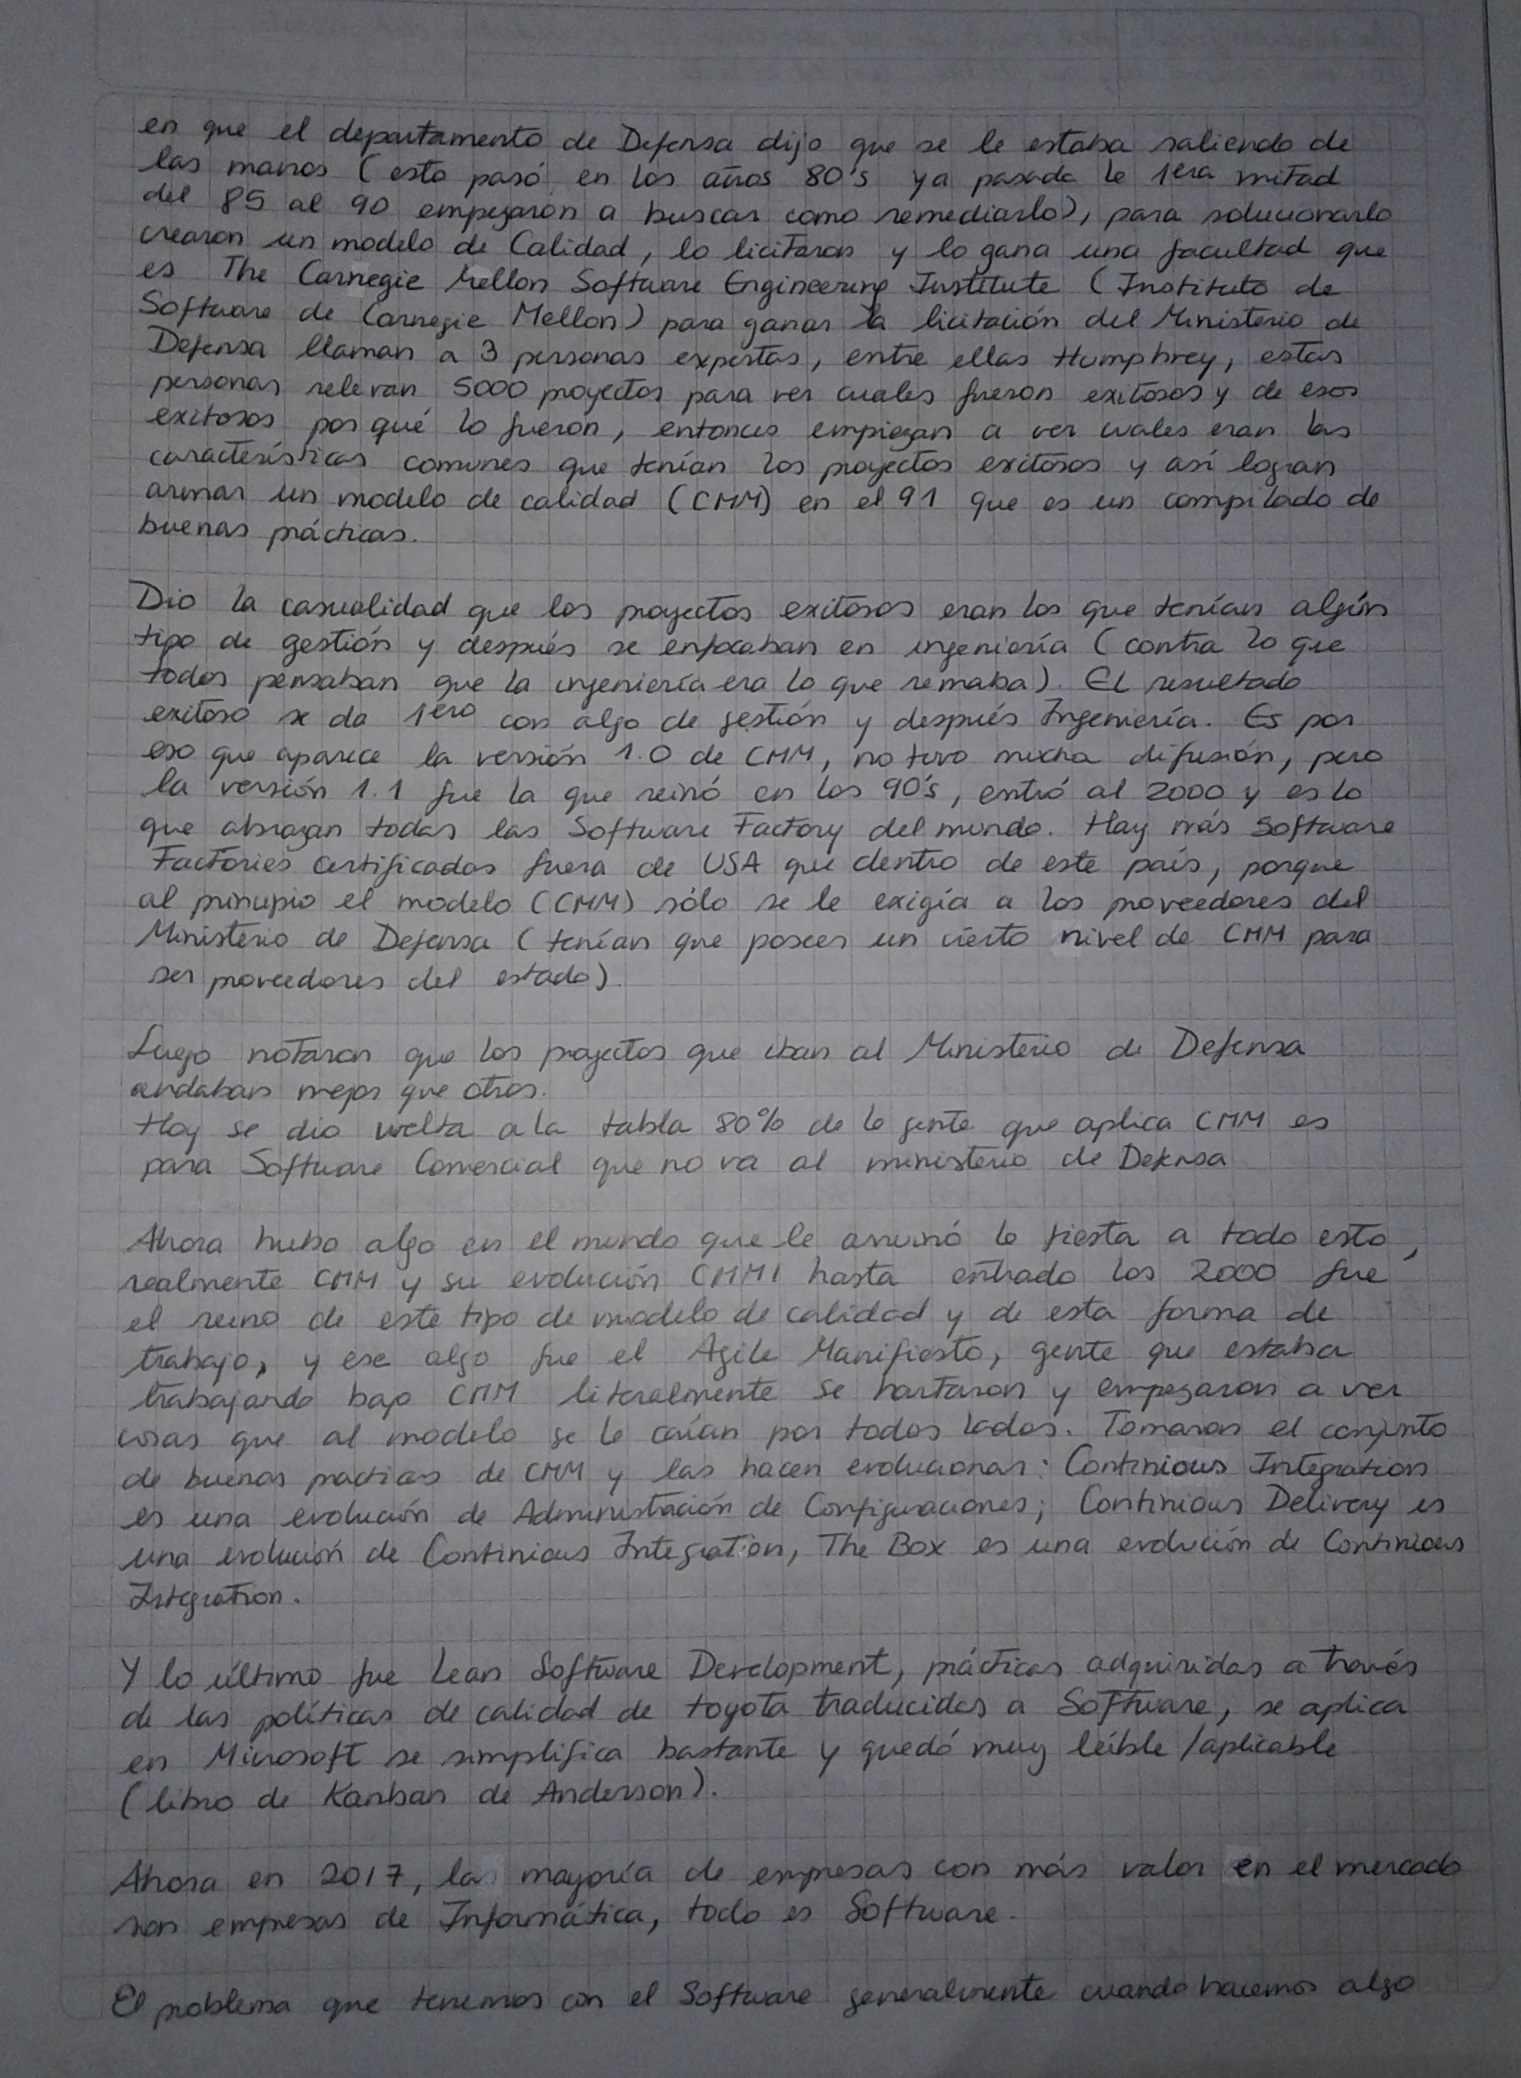 en que el departamento de Defensa dijo que se le estaba saliendo de
las manos (esto pasó en los años 80's ya pasada la 1era mitad
del 85 al 90 empezaron a buscar como remediarlo), para solucionarlo
crearon un modelo de Calidad, lo licitaron y lo gana una facultad que
es The Carnegie Mellon Software Engineering Institute (Instituto de
Software de Carnegie Mellon) para ganar la licitación del Ministerio de
Defensa llaman a 3 personas expertas, entre ellas Humphrey, estas
personas relevan 5000 proyectos para ver cuales fueron exitosos y de esos
exitosos por qué lo fueron, entonces empiezan a ver cuales eran las
características comunes que tenían los proyectos exitosos y así logran
armar un modelo de calidad (CMM) en el 91 que es un compilado de
buenas prácticas.
Dio la casualidad que los proyectos exitosos eran los que tenían algún
tipo de gestión y después se enfocaban en ingeniería (contra lo que
todos pensaban que la ingeniería era lo que remaba). El resultado
exitoso se da 1ero con algo de gestión y después Ingeniería. Es por
eso que aparece la versión 1.0 de CMM, no tuvo mucha difusión, pero
la versión 1.1 fue la que reinó en los 90's, entró al 2000 y es lo
que abrazan todas las Software Factory del mundo. Hay más Software
Factories certificadas fuera de USA que dentro de este país, porque
al principio el modelo (CMM) sólo se le exigía a los proveedores del
Ministerio de Defensa (tenían que poseer un cierto nivel de CMM para
ser proveedores del estado).
Luego notaron que los proyectos que iban al Ministerio de Defensa
andaban mejor que otros.
Hoy se dio vuelta a la tabla 80% de la gente que aplica CMM es
para Software Comercial que no va al ministerio de Defensa
Ahora hubo algo en el mundo que le arruinó la fiesta a todo esto,
realmente CMM y su evolución CMMI hasta entrado los 2000 fue
el reino de este tipo de modelo de calidad y de esta forma de
trabajo, y ese algo fue el Agile Manifiesto, gente que estaba
trabajando bajo CMM literalmente se hartaron y empezaron a ver
cosas que al modelo se le caían por todos lados. Tomaron el conjunto
de buenas practicas de CMM y las hacen evolucionar: Continious Integration
es una evolución de Administración de Configuraciones; Continious Delivery es
una evolución de Continious Integration, The Box es una evolución de Continious
Integration.
Y lo último fue Lean Software Development, prácticas adquiridas a través
de las políticas de calidad de toyota traducidas a Software, se aplica
en Microsoft se simplifica bastante y quedó muy leíble/aplicable
(libro de Kanban de Anderson).
Ahora en 2017, la mayoría de empresas con más valor en el mercado
son empresas de Informática, todo es Software.
El problema que tenemos con el Software generalmente cuando hacemos algo